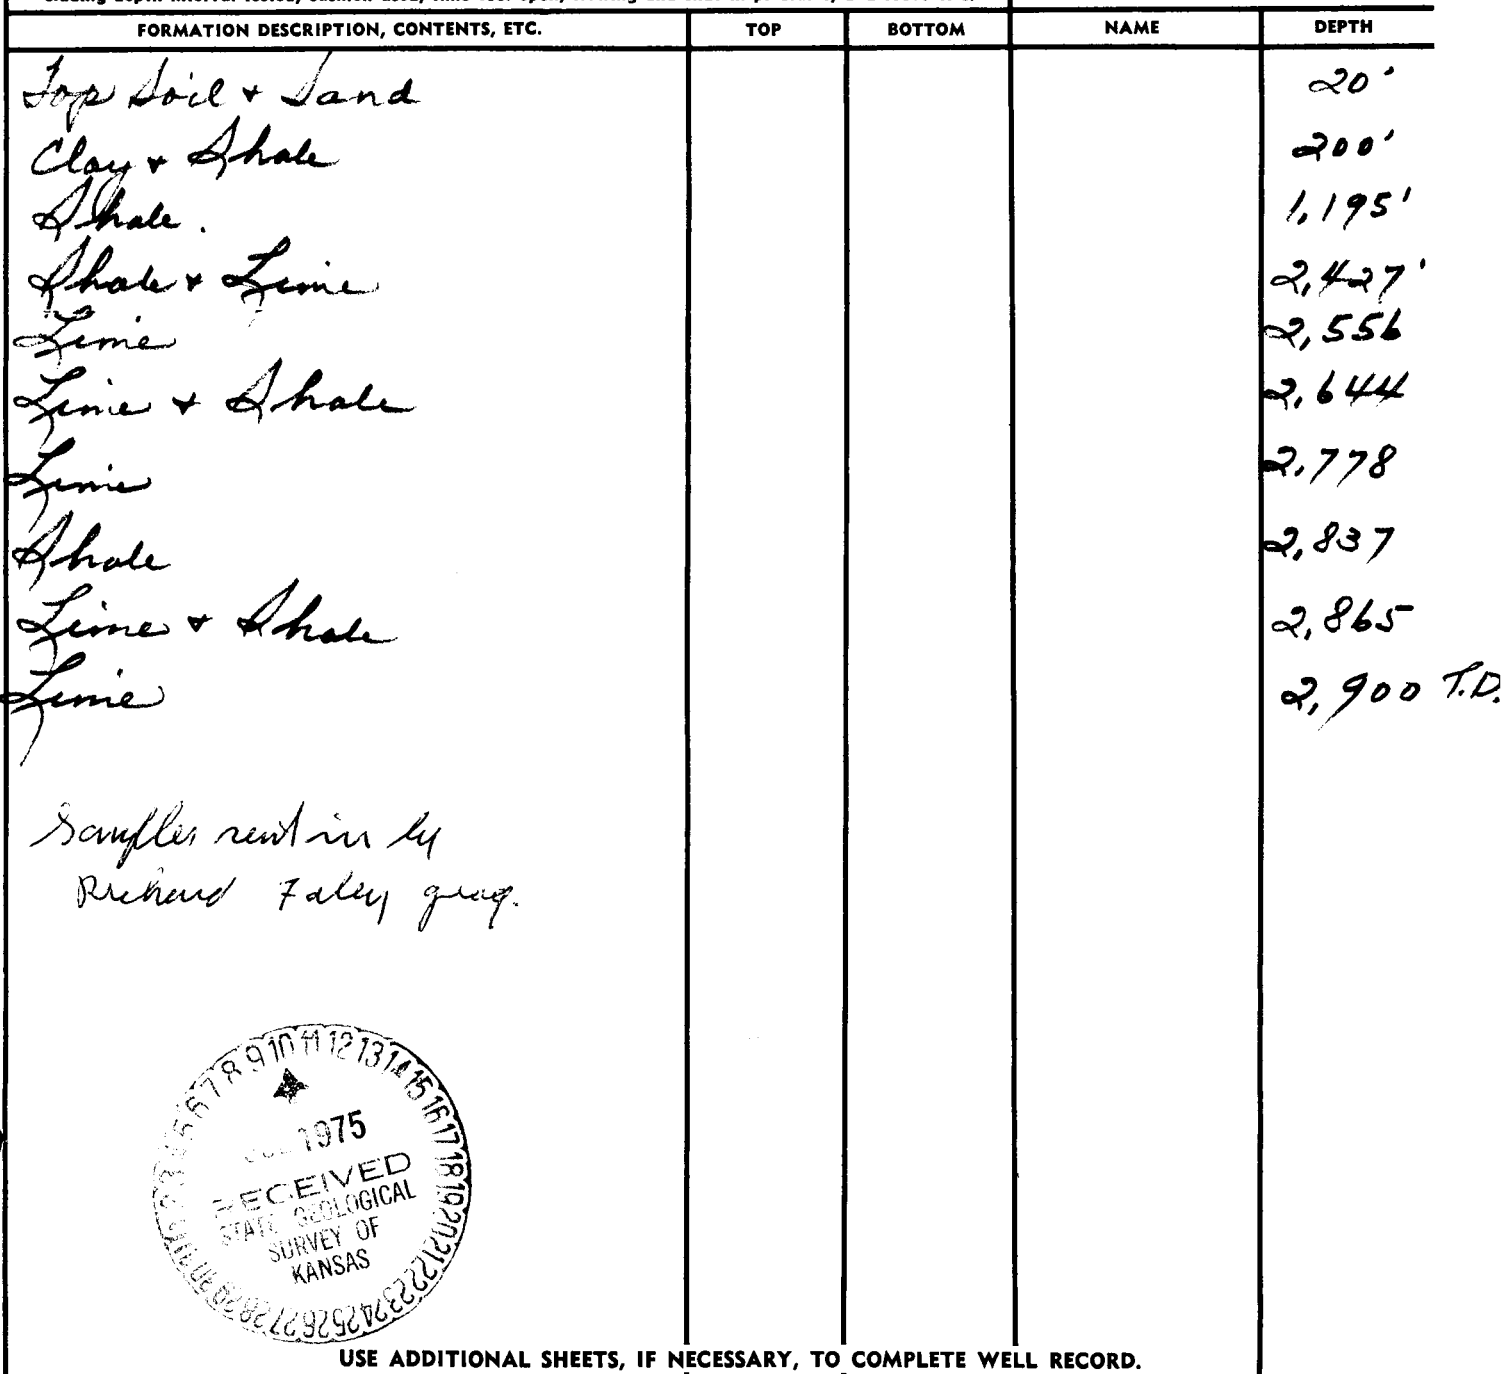 FORMATION DESCRIPTION, CONTENTS, ETC. TOP BOTTOM NAME DEPTH
Top Soil + Sand 20'
Clay + Shale 200'
Shale. 1,195'
Shale + Lime 2,427'
Lime 2,556
Lime + Shale 2,644
Lime 2,778
Shale 2,837
Lime + Shale 2,865
Lime 2,900 T.D.
Samples sent in by
Richard Faley
9 10 11 12 13 14 15 16 17 18 19 20 21 22 23 24 25 26 27 28
1975
RECEIVED
STATE GEOLOGICAL
SURVEY OF
KANSAS
USE ADDITIONAL SHEETS, IF NECESSARY, TO COMPLETE WELL RECORD.